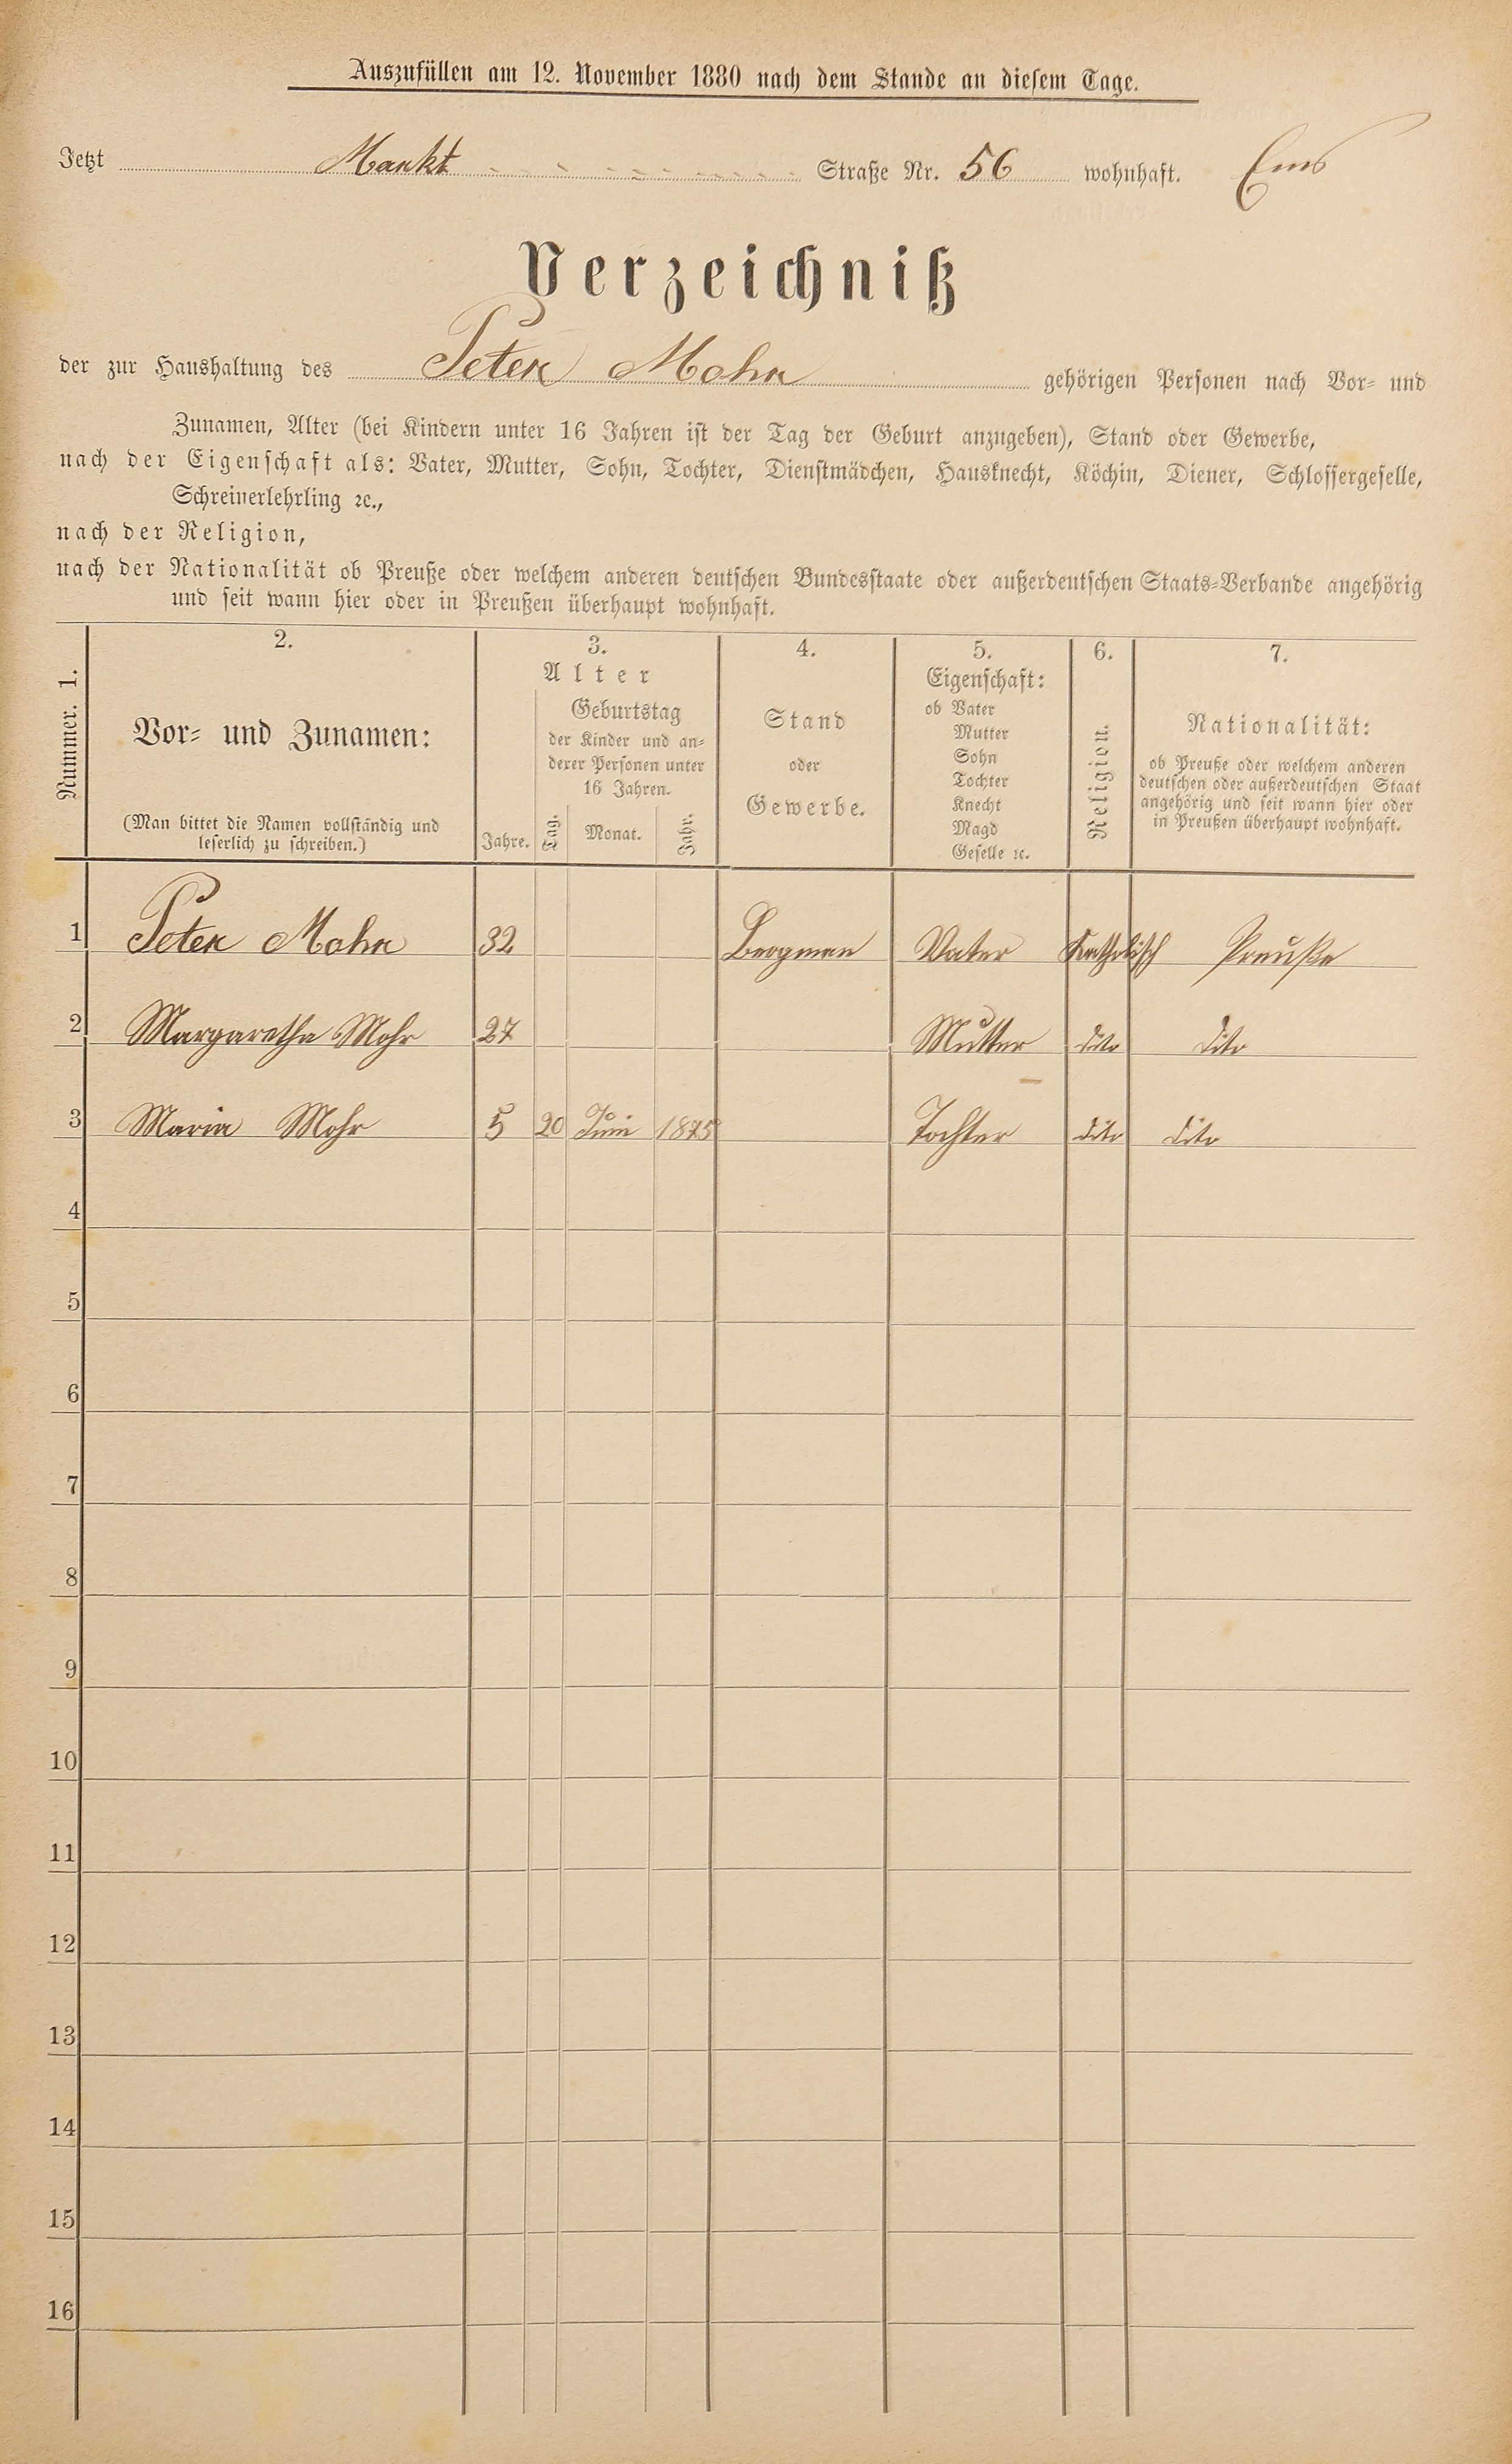 Auszufüllen am 12. November 1880 nach dem Stande an diesem Tage.
Jetzt Markt Straße Nr. 56 wohnhaft. Ems
Verzeichniß
der zur Haushaltung des Peter Mohr gehörigen Personen nach Vor- und
Zunamen, Alter (bei Kindern unter 16 Jahren ist der Tag der Geburt anzugeben), Stand oder Gewerbe,
nach der Eigenschaft als: Vater, Mutter, Sohn, Tochter, Dienstmädchen, Hausknecht, Köchin, Diener, Schlossergeselle,
Schreinerlehrling ꝛc.,
nach der Religion,
nach der Nationalität ob Preuße oder welchem anderen deutschen Bundesstaate oder außerdeutschen Staats-Verbande angehörig
und seit wann hier oder in Preußen überhaupt wohnhaft.
Nummer. 1.
2.
Vor- und Zunamen:
(Man bittet die Namen vollständig und
leserlich zu schreiben.)
3.
Alter
Geburtstag
der Kinder und an-
derer Personen unter
16 Jahren.
Jahre. Tag. Monat. Jahr.
4.
Stand
oder
Gewerbe.
5.
Eigenschaft:
ob Vater
Mutter
Sohn
Tochter
Knecht
Magd
Geselle ꝛc.
6.
Religion.
7.
Nationalität:
ob Preuße oder welchem anderen
deutschen oder außerdeutschen Staat
angehörig und seit wann hier oder
in Preußen überhaupt wohnhaft.
1 Peter Mohr 32 Bergman Vater Katholisch Preuße
2 Margaretha Mohr 27 Mutter dito dito
3 Maria Mohr 5 20 Juni 1875 Tochter dito dito
4
5
6
7
8
9
10
11
12
13
14
15
16